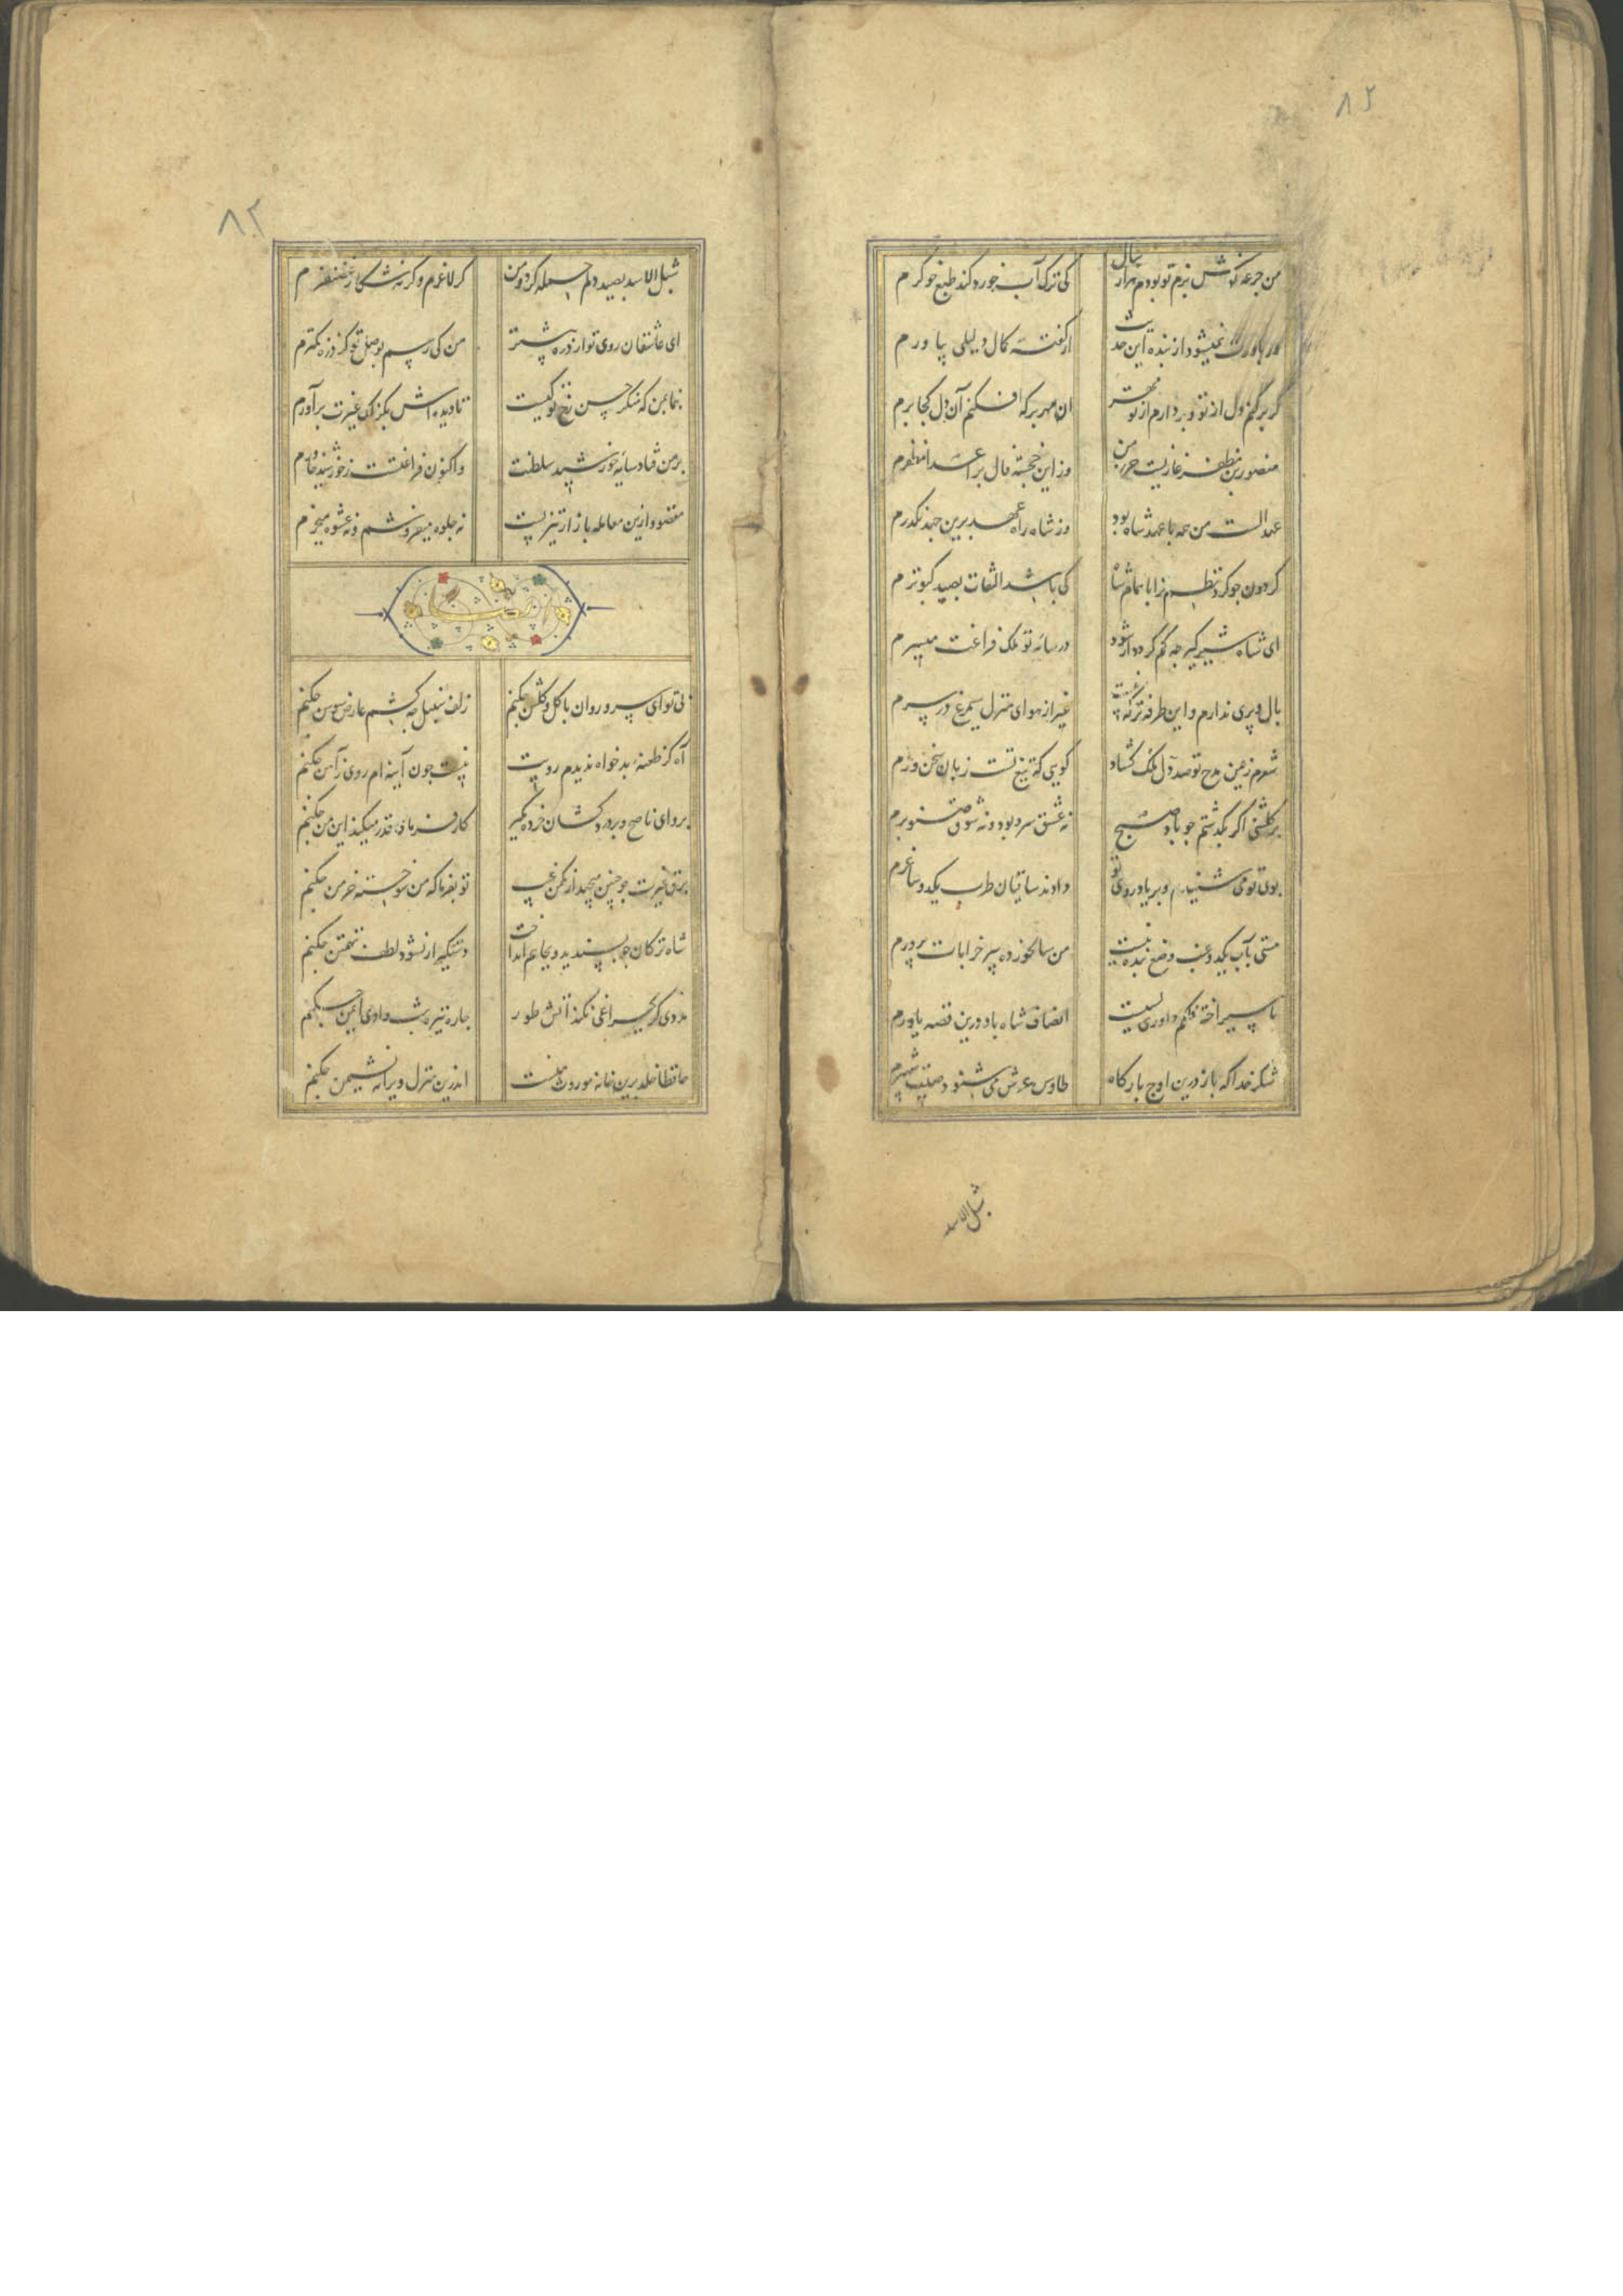 ۸۲
من جرعه نوش بزم تو بودم هزار سال
کی ترک آب خورد کند طبع خوکرم
ور باورت نمیشود از بنده این حدیث
از گفته کمال دلیلی بیاورم
گر برکنم دل از تو و بردارم از تو مهر
آن مهر بر که افکنم آن دل کجا برم
منصور بن مظفر غازیست حرز من
وز این خجسته فال بر اعدا مظفرم
عهد الست من همه با عهد شاه بود
وز شاه راه عهد برین عهد نگذرم
گردون جو کرد نظم ثریا بنام شاه
کی باشد التفات بصید کبوترم
ای شاه شیرگیر چه کم گردد ار شود
در سایه تو ملک فراغت میسرم
بال و پری ندارم و این طرفه تر که نیست
غیر از هوای منزل سیمرغ در سرم
شعرم ز یمن مدح تو صد دل ملک گشاد
گویی که تیغ تست زبان سخن ورم
بر گلشنی اگر بگذشتم جو باد صبح
نه عشق سرو بود و نه شوق صنوبرم
بوی تو می شنیدم و بر یاد روی تو
دادند ساقیان طرب یکدو ساغرم
مستی بآب یکدو عنب وضع بنده نیست
من سالخورده پیر خرابات پرورم
با سیر اختر فلکم داوری بسیست
انصاف شاه باد درین قصه یاورم
شکر خدا که باز درین اوج بارگاه
طاوس عرش می شنود صیت شهپرم
شبل الاسد
۸۳
شبل الاسد بصید دلم حمله کرد و من
گر لاغرم وگرنه شکار غضنفرم
ای عاشقان روی تو از ذره بیشتر
من کی رسم بوصل تو کز ذره کمترم
بنما بمن که منکر حسن رخ تو کیست
تا دیده اش بکزلک غیرت برآورم
بر من فتاد سایه خورشید سلطنت
و اکنون فراغتست ز خورشید خاورم
مقصود ازین معامله بازار تیزیست
نه جلوه میفروشم و نه عشوه میخرم
ایضا
بی تو ای سرو روان با گل و گلشن چکنم
زلف سنبل چه کشم عارض سوسن چکنم
آه کز طعنه بدخواه ندیدم رویت
نیست جون آینه ام روی ز آهن چکنم
برو ای ناصح و بر درد کشان خرده مگیر
کارفرمای قدر میکند این من چکنم
برق غیرت جو جنین میجهد از مکمن غیب
تو بفرما که من سوخته خرمن چکنم
شاه ترکان جو پسندید و بچاهم انداخت
دستگیر ار نشود لطف تهمتن چکنم
مددی گر بچراغی نکند آتش طور
جاره تیره شب وادی ایمن چکنم
حافظا خلد برین خانه موروث منست
اندرین منزل ویرانه نشیمن چکنم